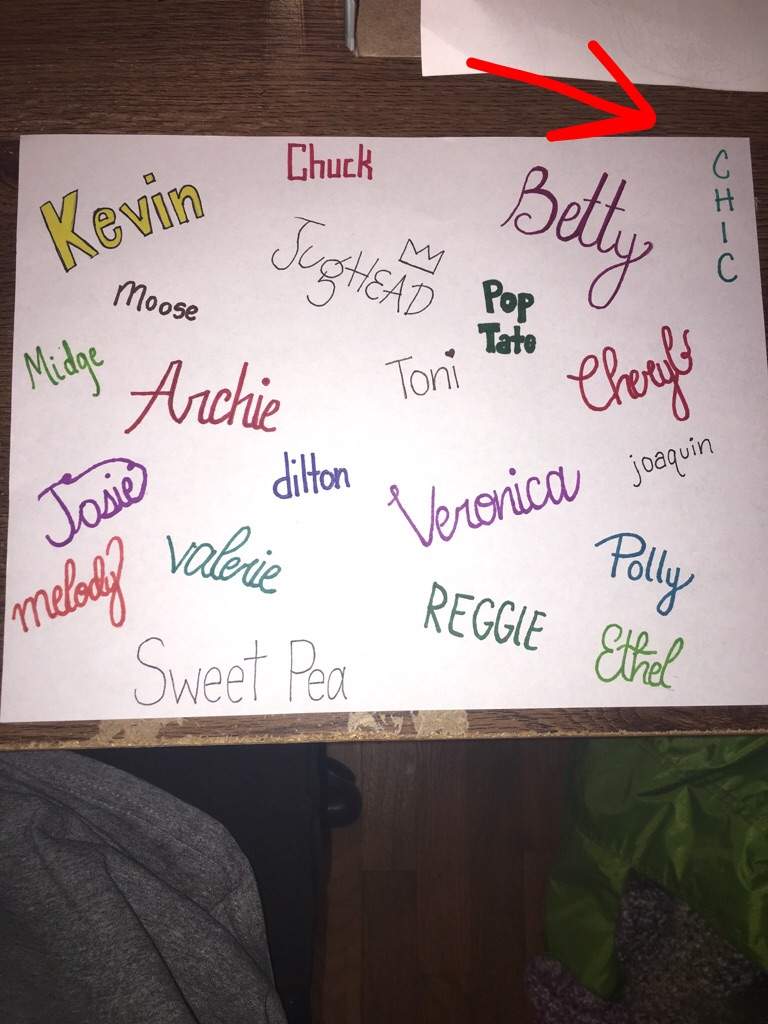 Chuck
Kevin
Betty
CHIC
JugHEAD
Moose
Pop
Tate
Midge
Archie
Toni
Cheryl
Josie
dilton
Veronica
joaquin
melody
valerie
Polly
REGGIE
Ethel
Sweet Pea